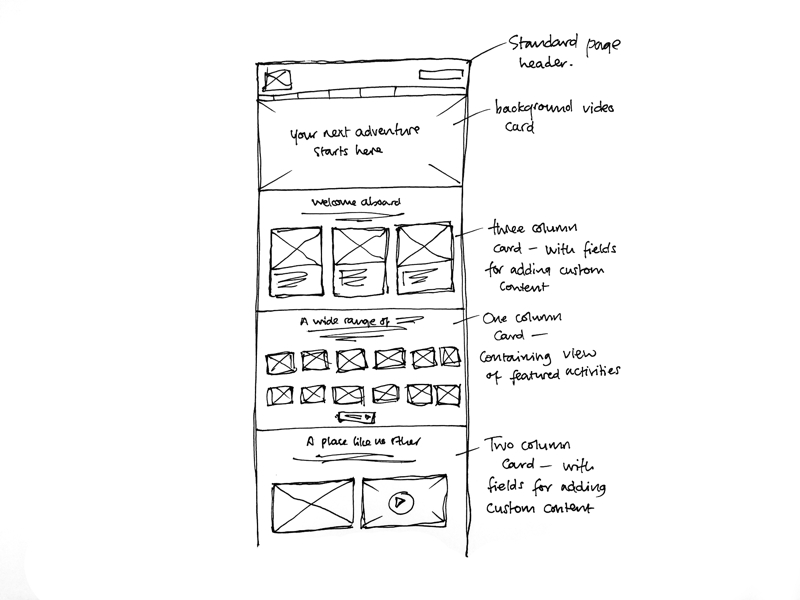 Standard page
header.
Your next adventure
starts here
background video
card
Welcome aboard
three column
card – with fields
for adding custom
content
A wide range of
One column
card –
containing view
of featured activities
A place like no other
Two column
card – with
fields for adding
custom content